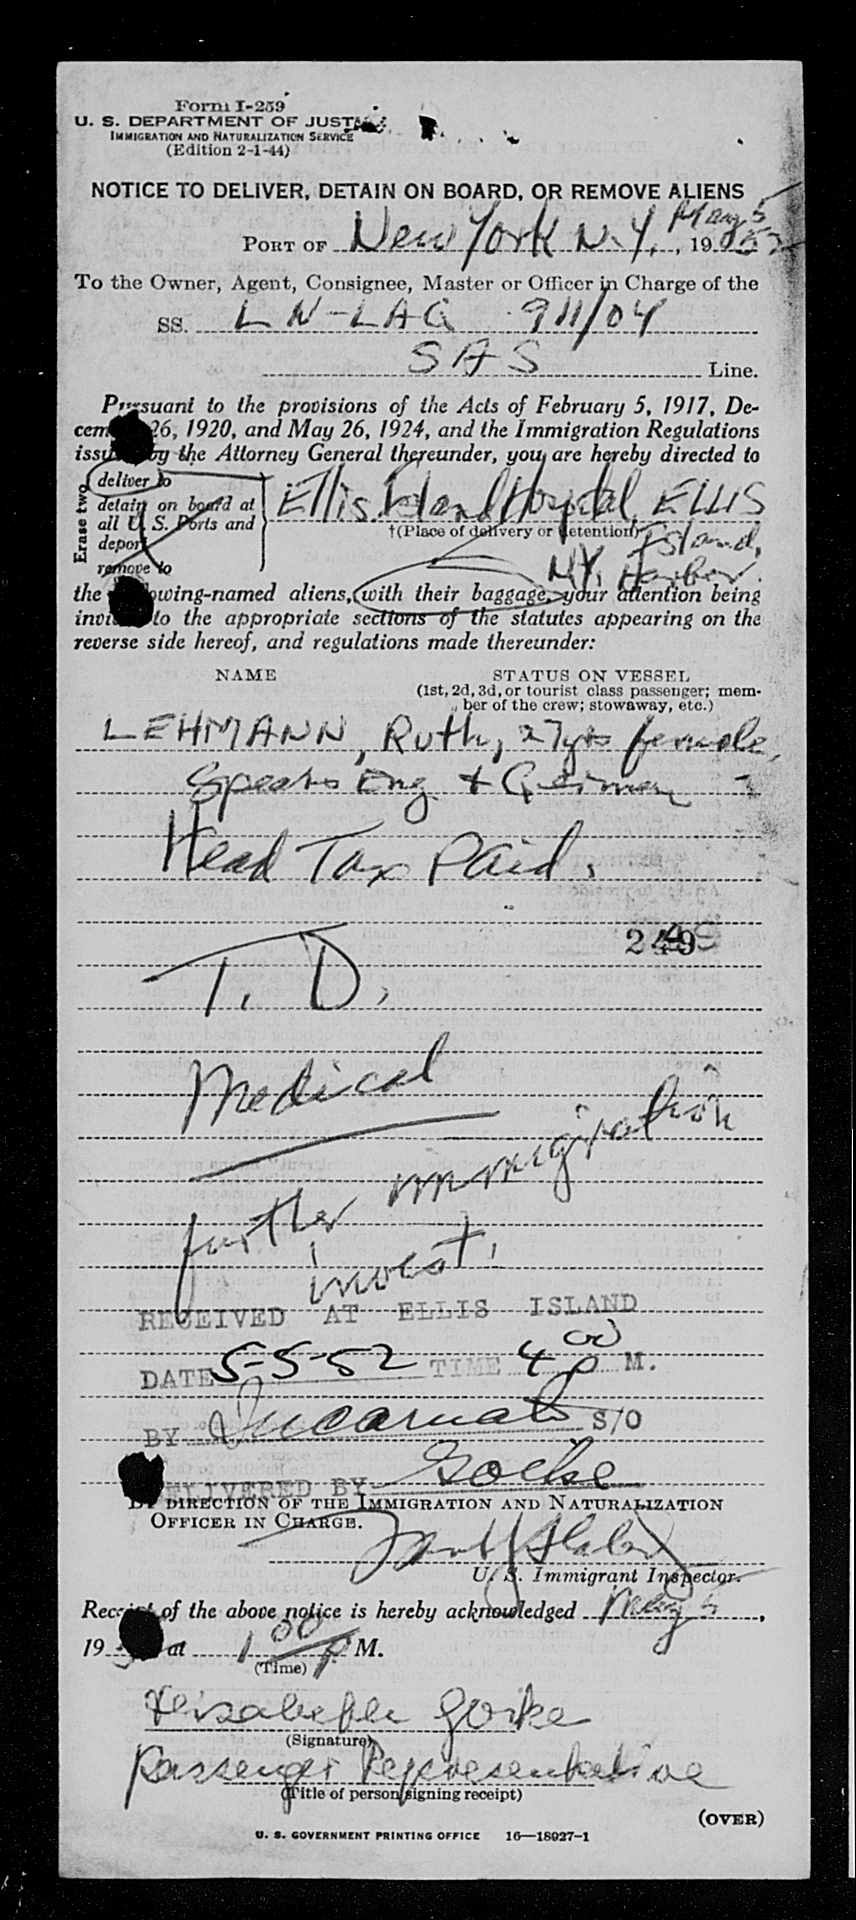 Form I-259
U. S. DEPARTMENT OF JUSTICE
IMMIGRATION AND NATURALIZATION SERVICE
(Edition 2-1-44)
NOTICE TO DELIVER, DETAIN ON BOARD, OR REMOVE ALIENS
May 5
PORT OF New York N.Y., 1952
To the Owner, Agent, Consignee, Master or Officer in Charge of the
SS. LN-LAG 911/04
SAS Line.
Pursuant to the provisions of the Acts of February 5, 1917, De-
cember 26, 1920, and May 26, 1924, and the Immigration Regulations
issued by the Attorney General thereunder, you are hereby directed to
Erase two
deliver to
detain on board at
all U. S. Ports and
deport
remove to
Ellis Island Hospital, ELLIS
†(Place of delivery or detention)
Island,
N.Y. Harbor.
the following-named aliens, with their baggage, your attention being
invited to the appropriate sections of the statutes appearing on the
reverse side hereof, and regulations made thereunder:
NAME STATUS ON VESSEL
(1st, 2d, 3d, or tourist class passenger; mem-
ber of the crew; stowaway, etc.)
LEHMANN, Ruth, 27 yrs female,
Speaks Eng. + German
Head Tax Paid.
249
T. D.
Medical
further immigration
invest.
RECEIVED AT ELLIS ISLAND
DATE 5-5-52 TIME 4 00 P M.
BY S/O
DELIVERED BY
BY DIRECTION OF THE IMMIGRATION AND NATURALIZATION
OFFICER IN CHARGE.
U. S. Immigrant Inspector.
Receipt of the above notice is hereby acknowledged May 5,
195 at 1 00 P M.
(Time)
(Signature)
Passenger Representative
(Title of person signing receipt)
(OVER)
U. S. GOVERNMENT PRINTING OFFICE 16—18927-1